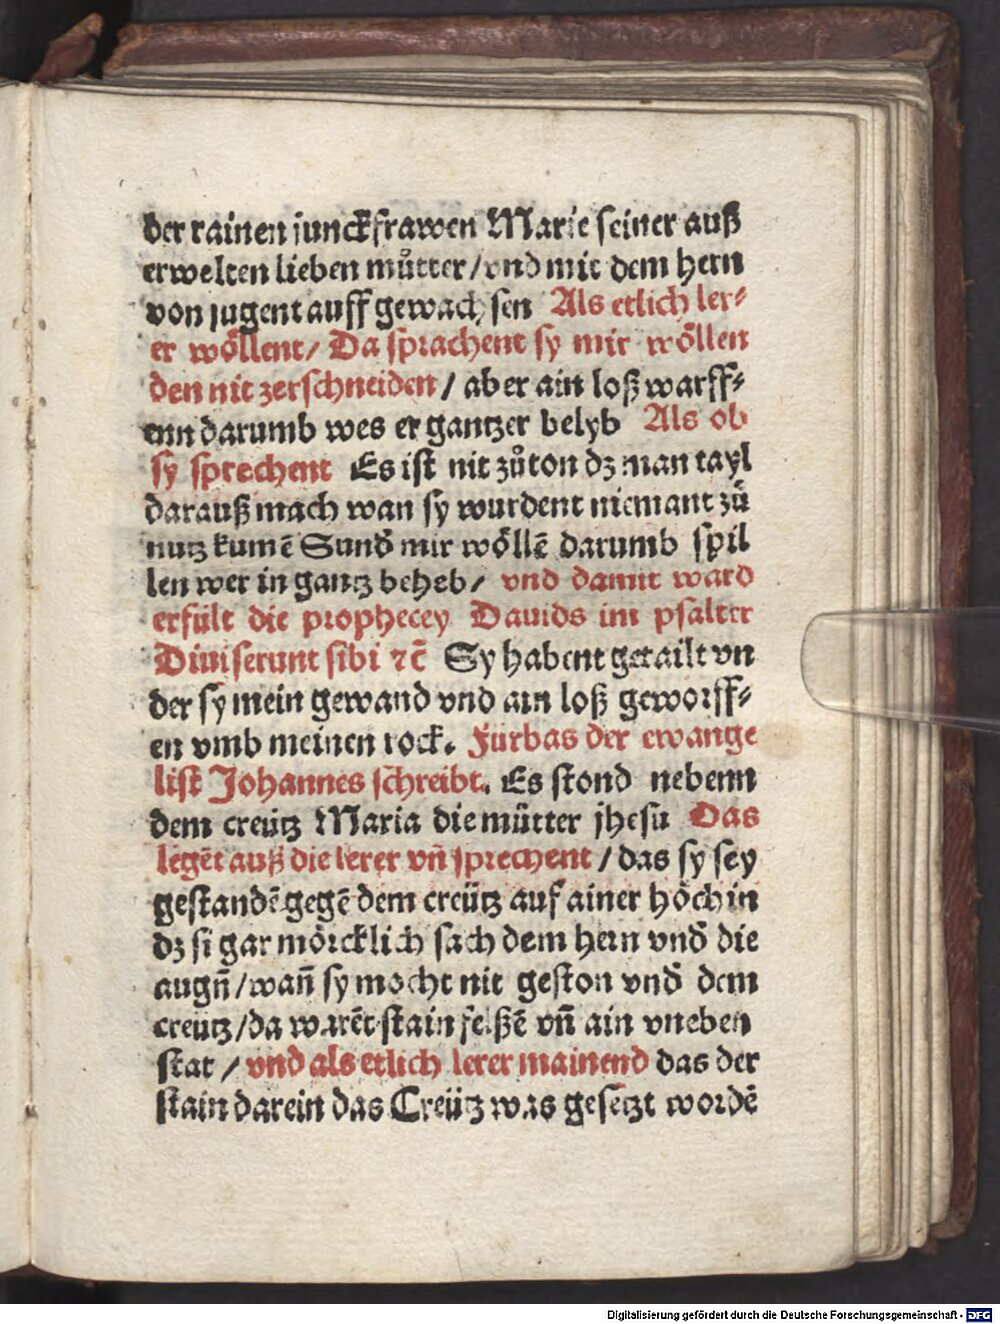 der rainen junckfrawen Marie seiner auß
erwelten lieben můtter/vnd mit dem hern
von jugent auff gewachsen Als etlich ler⸗
er wöllent/ Da sprachent sy mir wöllen
den nit zerschneiden/ aber ain loß warff⸗
enn darumb wes er gantzer belyb Als ob
sy sprechent Es ist nit zůton dz man tayl
darauß mach wan sy wurdent niemant zů
nutz kumē Sund̄ mir wöllē darumb spil
len wer in gantz beheb/ vnd damit ward
erfült die prophecey Dauids im psalter
Diuiserunt sibi ⁊c̄ Sy habent getailt vn
der sy mein gewand vnd ain loß geworff⸗
en vmb meinen rock. Fürbas der ewange
list Johannes schreibt. Es stond nebenn
dem creütz Maria die můtter jhesu Das
legēt auß die lerer vn̄ sprechent/ das sy sey
gestandē gegē dem creütz auf ainer höch in
dz si gar mörcklich sach dem hern vnd̄ die
augn̄/wan̄ sy mocht nit geston vnd̄ dem
creutz/da warēt stain felßē vn̄ ain vneben
stat/ vnd als etlich lerer mainend das der
stain darein das Creütz was gesetzt wordē
Digitalisierung gefördert durch die Deutsche Forschungsgemeinschaft - DFG